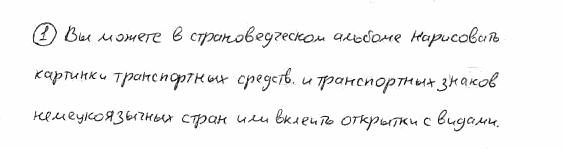 ① Вы можете в страноведческом альбоме нарисовать
картинки транспортных средств. и транспортных знаков
немецкоязычных стран или вклеить открытки с видами.